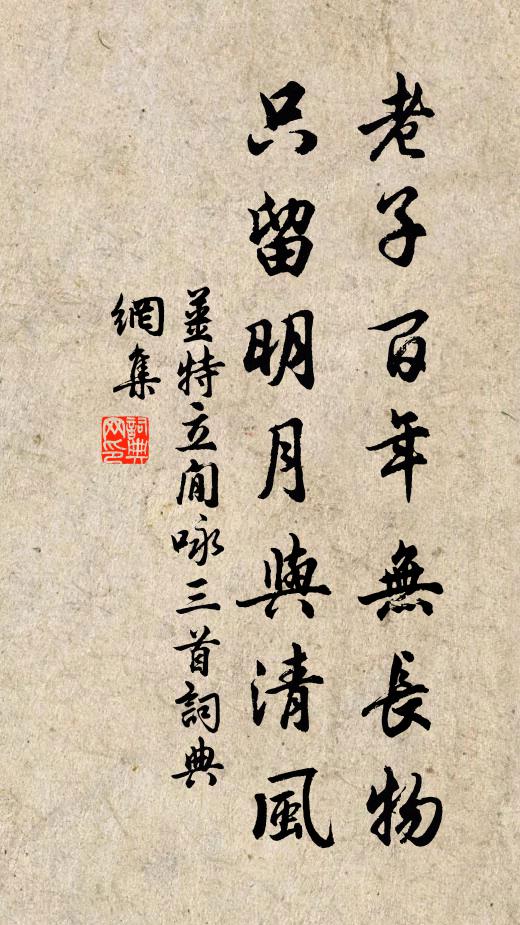 老子百年無長物
只留明月與清風
姜特立閒咏三首詞典
網集
詞典网印